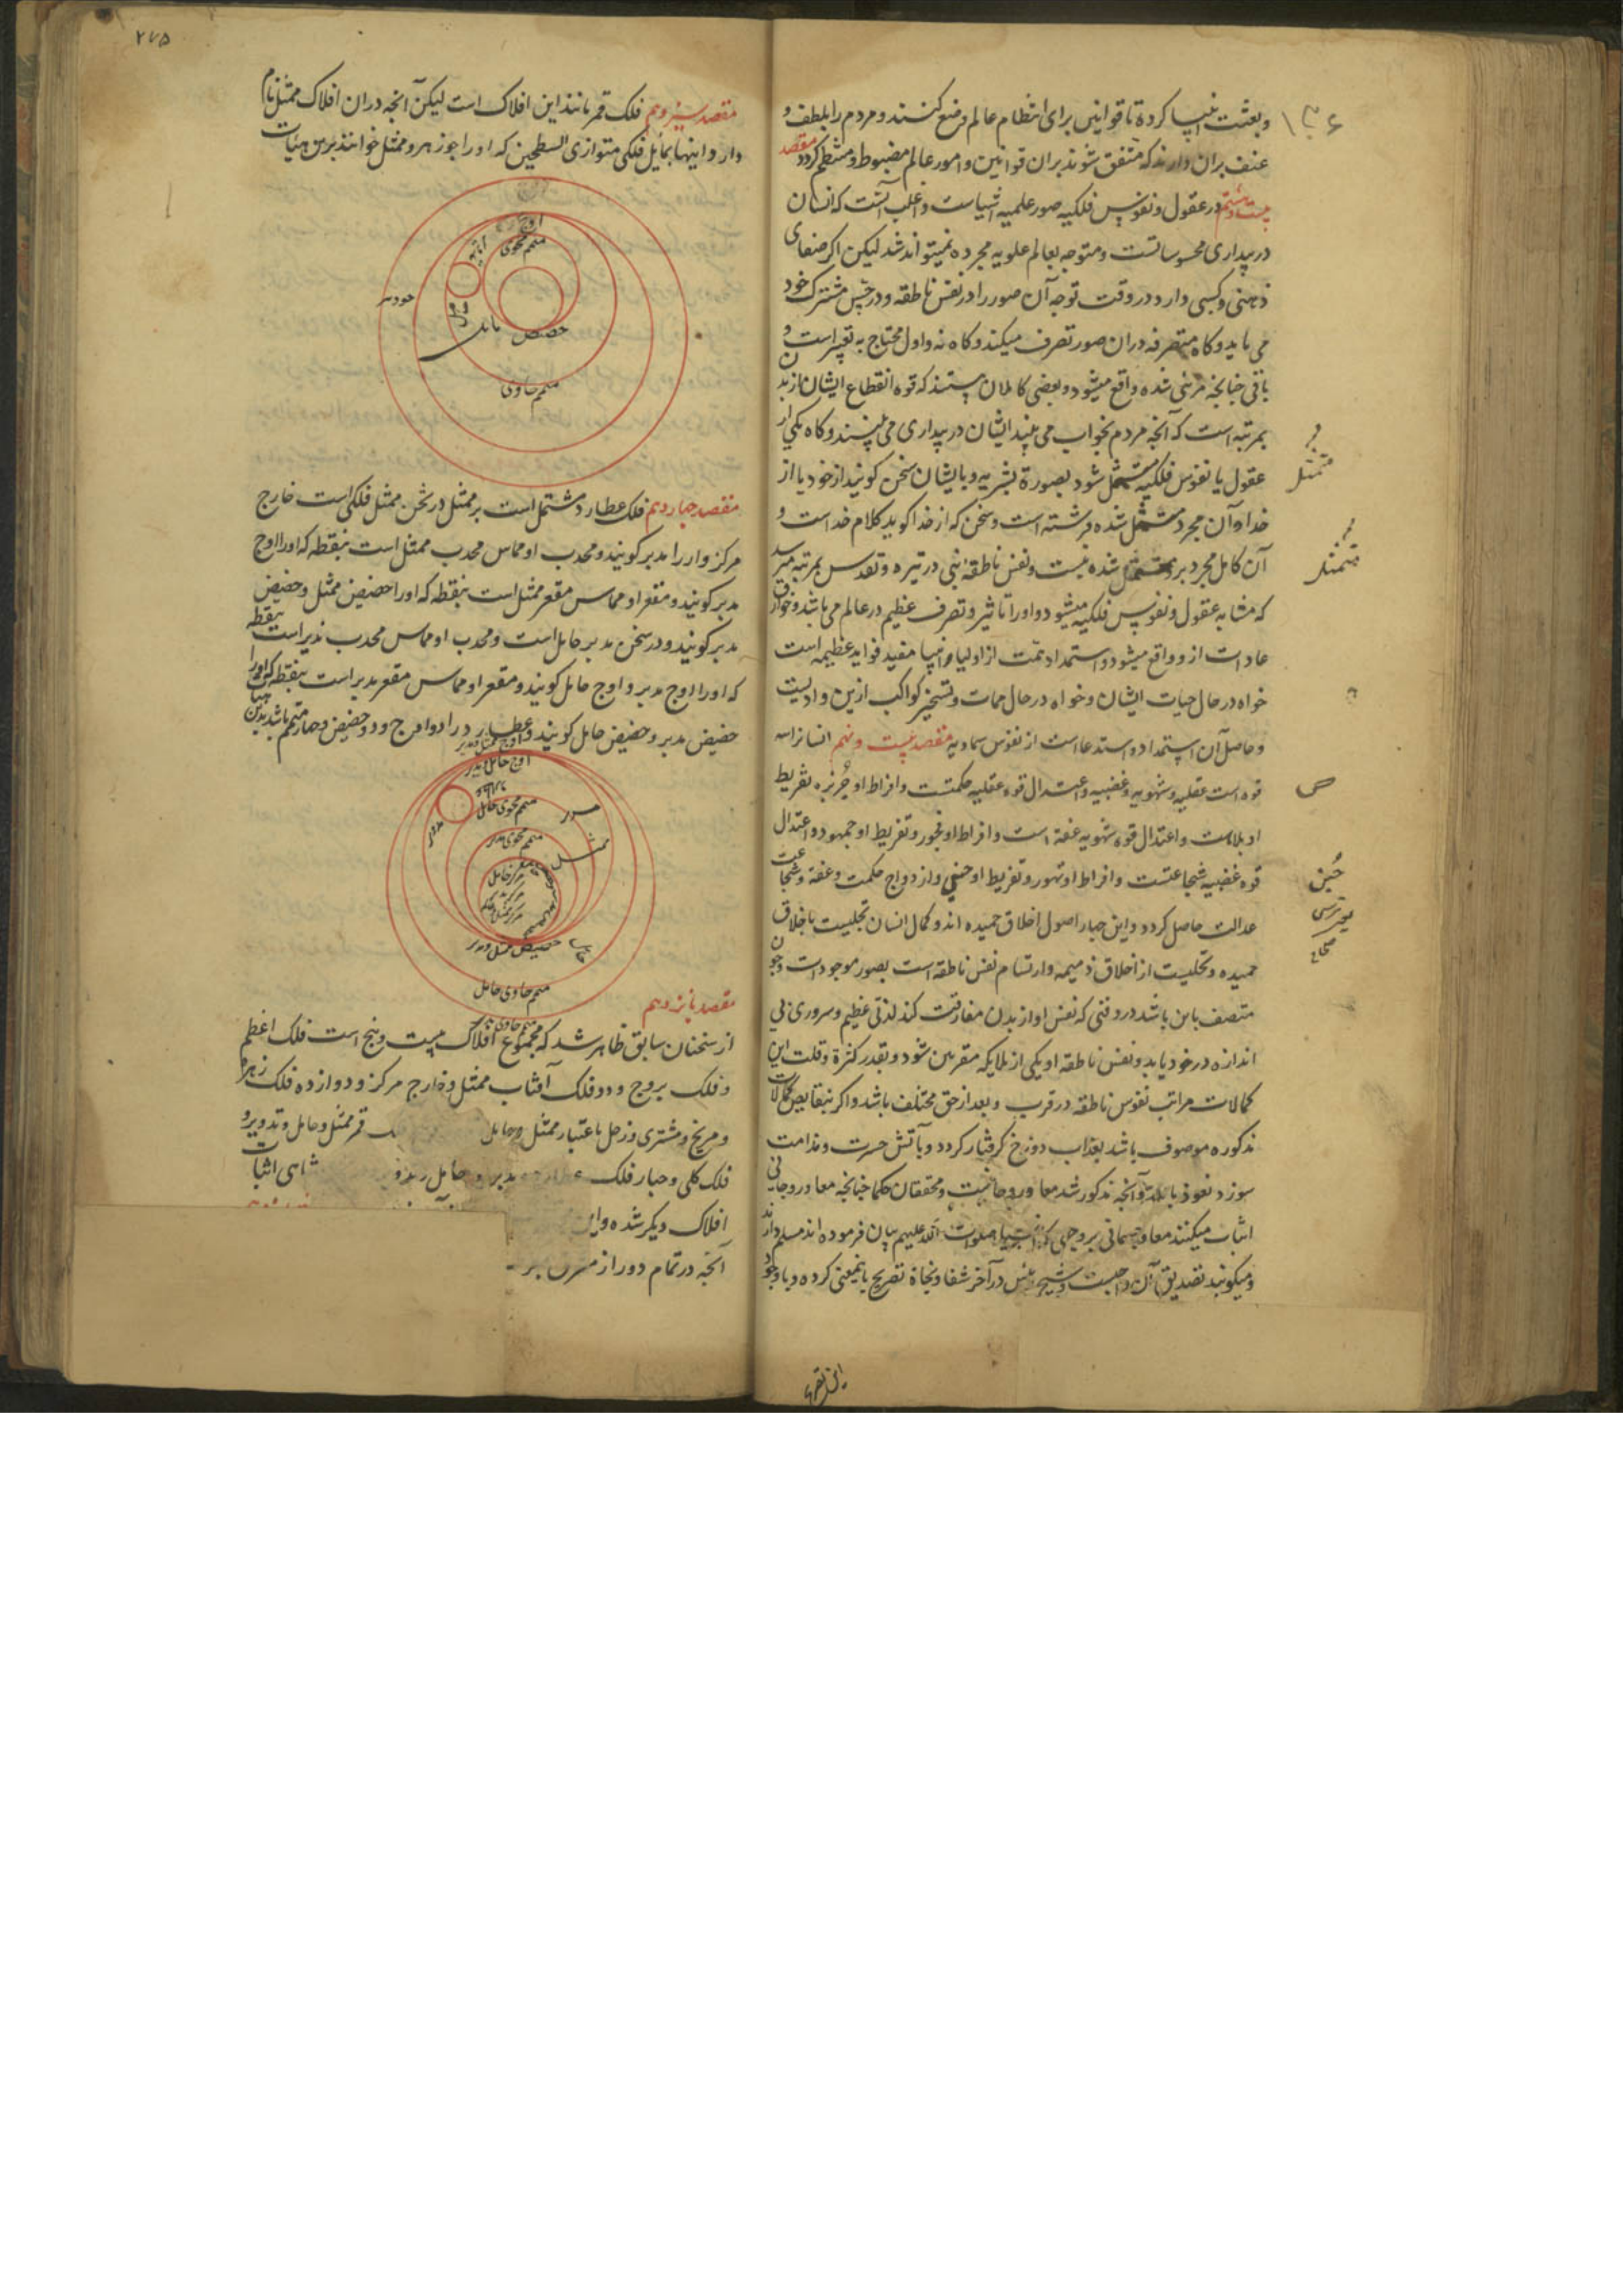 وبعثت انبیا کرده تا قوانین برای انتظام عالم وضع کنند و مردم را بلطف و
عنف بران دارند که متفق شوند بران قوانین و امور عالم مضبوط و منتظم کردد مقصد
بیست و هشتم در عقول و نفوس فلکیه صور علمیه اشیاست و اغلب آنست که انسان
در بیداری محسوساتست و متوجه بعالم علویه مجرده نمیتواند شد لیکن اکر صفای
ذهنی و کسبی دارد در وقت توجه آن صور را در نفس ناطقه و در حس مشترک خود
می یابد و کاه متصرفه دران صور تصرف میکند و کاه نه و اول محتاج به تعبیر است و
باقی چنانچه مرئی شده واقع میشود و بعضی کاملان هستند که قوه انقطاع ایشان از بدن
بمرتبه است که آنچه مردم بخواب می بینند ایشان در بیداری می بینند و کاه یکی از
عقول یا نفوس فلکیه متمثل شود بصورة بشریه و با ایشان سخن کویند از خود یا از
خدا و آن مجرد متمثل شده فرشته است و سخن که از خدا کوید کلام خداست و
آن کامل مجرد برو متمثل شده نیست و نفس ناطقه نبی در تیره و تقدس بمرتبه میرسد
که مشابه عقول و نفوس فلکیه میشود و او را تاثیر و تصرف عظیم در عالم می باشد و خوارق
عادات ازو واقع میشود و استمداد همت از اولیا و انبیا مفید فواید عظیمه است
خواه در حال حیات ایشان و خواه در حال ممات و تسخیر کواکب ازین وادیست
و حاصل آن استمداد و استدعا است از نفوس سماویه مقصد بیست و نهم انسانرا سه
قوه است عقلیه و شهویه و غضبیه و اعتدال قوه عقلیه حکمتست و افراط او جربزه تفریط
او بلاهت و اعتدال قوه شهویه عفة است و افراط او فجور و تفریط او جمود و اعتدال
قوه غضبیه شجاعتست و افراط او تهور و تفریط او جبن و از دواج حکمت و عفة و شجاعت
عدالت حاصل کردد و این چهار اصول اخلاق حمیده اند و کمال انسان تحلیست باخلاق
حمیده و تخلیست از اخلاق ذمیمه و ارتسام نفس ناطقه است بصور موجودات و چون
متصف باین باشد در وقتی که نفس او از بدن مفارقت کند لذتی عظیم و سروری بی
اندازه در خود یابد و نفس ناطقه او یکی از ملایکه مقربین شود و بقدر کثرة و قلت این
کمالات مراتب نفوس ناطقه در قرب و بعد از حق مختلف باشد و اکر بنقایص کمالات
مذکوره موصوف باشد بعذاب دوزخ کرفتار کردد و بآتش حسرت و ندامت
سوزد نعوذ بالله و آنچه مذکور شد معاد روحانیست و محققان حکما چنانچه معاد روحانی
اثبات میکنند معاد جسمانی بروجهی که انبیا صلوات الله علیهم بیان فرموده اند مسلم دارند
و میکویند تصدیق آن واجبست و شیخ رئیس در آخر شفا و نجاة تصریح باین معنی کرده و با وجود
متمثل
متمثل
ص
جبن
صحاح
۲۷۵
مقصد سیزدهم فلک قمر مانند این افلاک است لیکن آنچه دران افلاک ممثل نام
دارد اینها بمایل فلکی متوازی السطحین که او را جوزهر و ممثل خوانند برین هیات
اوج
متمم محوی
حامل
مایل
حضیض
متمم حاوی
جوزهر
مقصد چهاردهم فلک عطارد مشتمل است بر ممثل در ثخن ممثل فلکی است خارج
مرکز و او را مدیر کویند و محدب او مماس محدب ممثل است بنقطه که او را اوج
مدیر کویند و مقعر او مماس مقعر ممثل است بنقطه که او را حضیض ممثل و حضیض
مدیر کویند و در سخن مدیر حامل است و محدب او مماس محدب مدیر است بنقطه
که او را اوج مدیر و اوج حامل کویند و مقعر او مماس مقعر مدیر است بنقطه که او را
حضیض مدیر و حضیض حامل کویند و عطارد را دو اوج و دو حضیض و چهار متمم باشد بدین هیات
اوج ممثل و مدیر
اوج حامل مدیر
متمم محوی حامل
متمم محوی مدیر
مدیر
ممثل
مرکز حامل
حضیض ممثل و مدیر
متمم حاوی حامل
متمم حاوی مدیر
مقصد پانزدهم
از سخنان سابق ظاهر شد که مجموع افلاک بیست و پنج است فلک اعظم
و فلک بروج و دو فلک آفتاب ممثل و خارج مرکز و دوازده فلک زهره
و مریخ و مشتری و زحل باعتبار ممثل و حامل قمر ممثل و حامل و تدویر و
فلک کلی و چهار فلک مدیر و حامل اثبات
افلاک دیکر شده و این
آنچه در تمام دور از